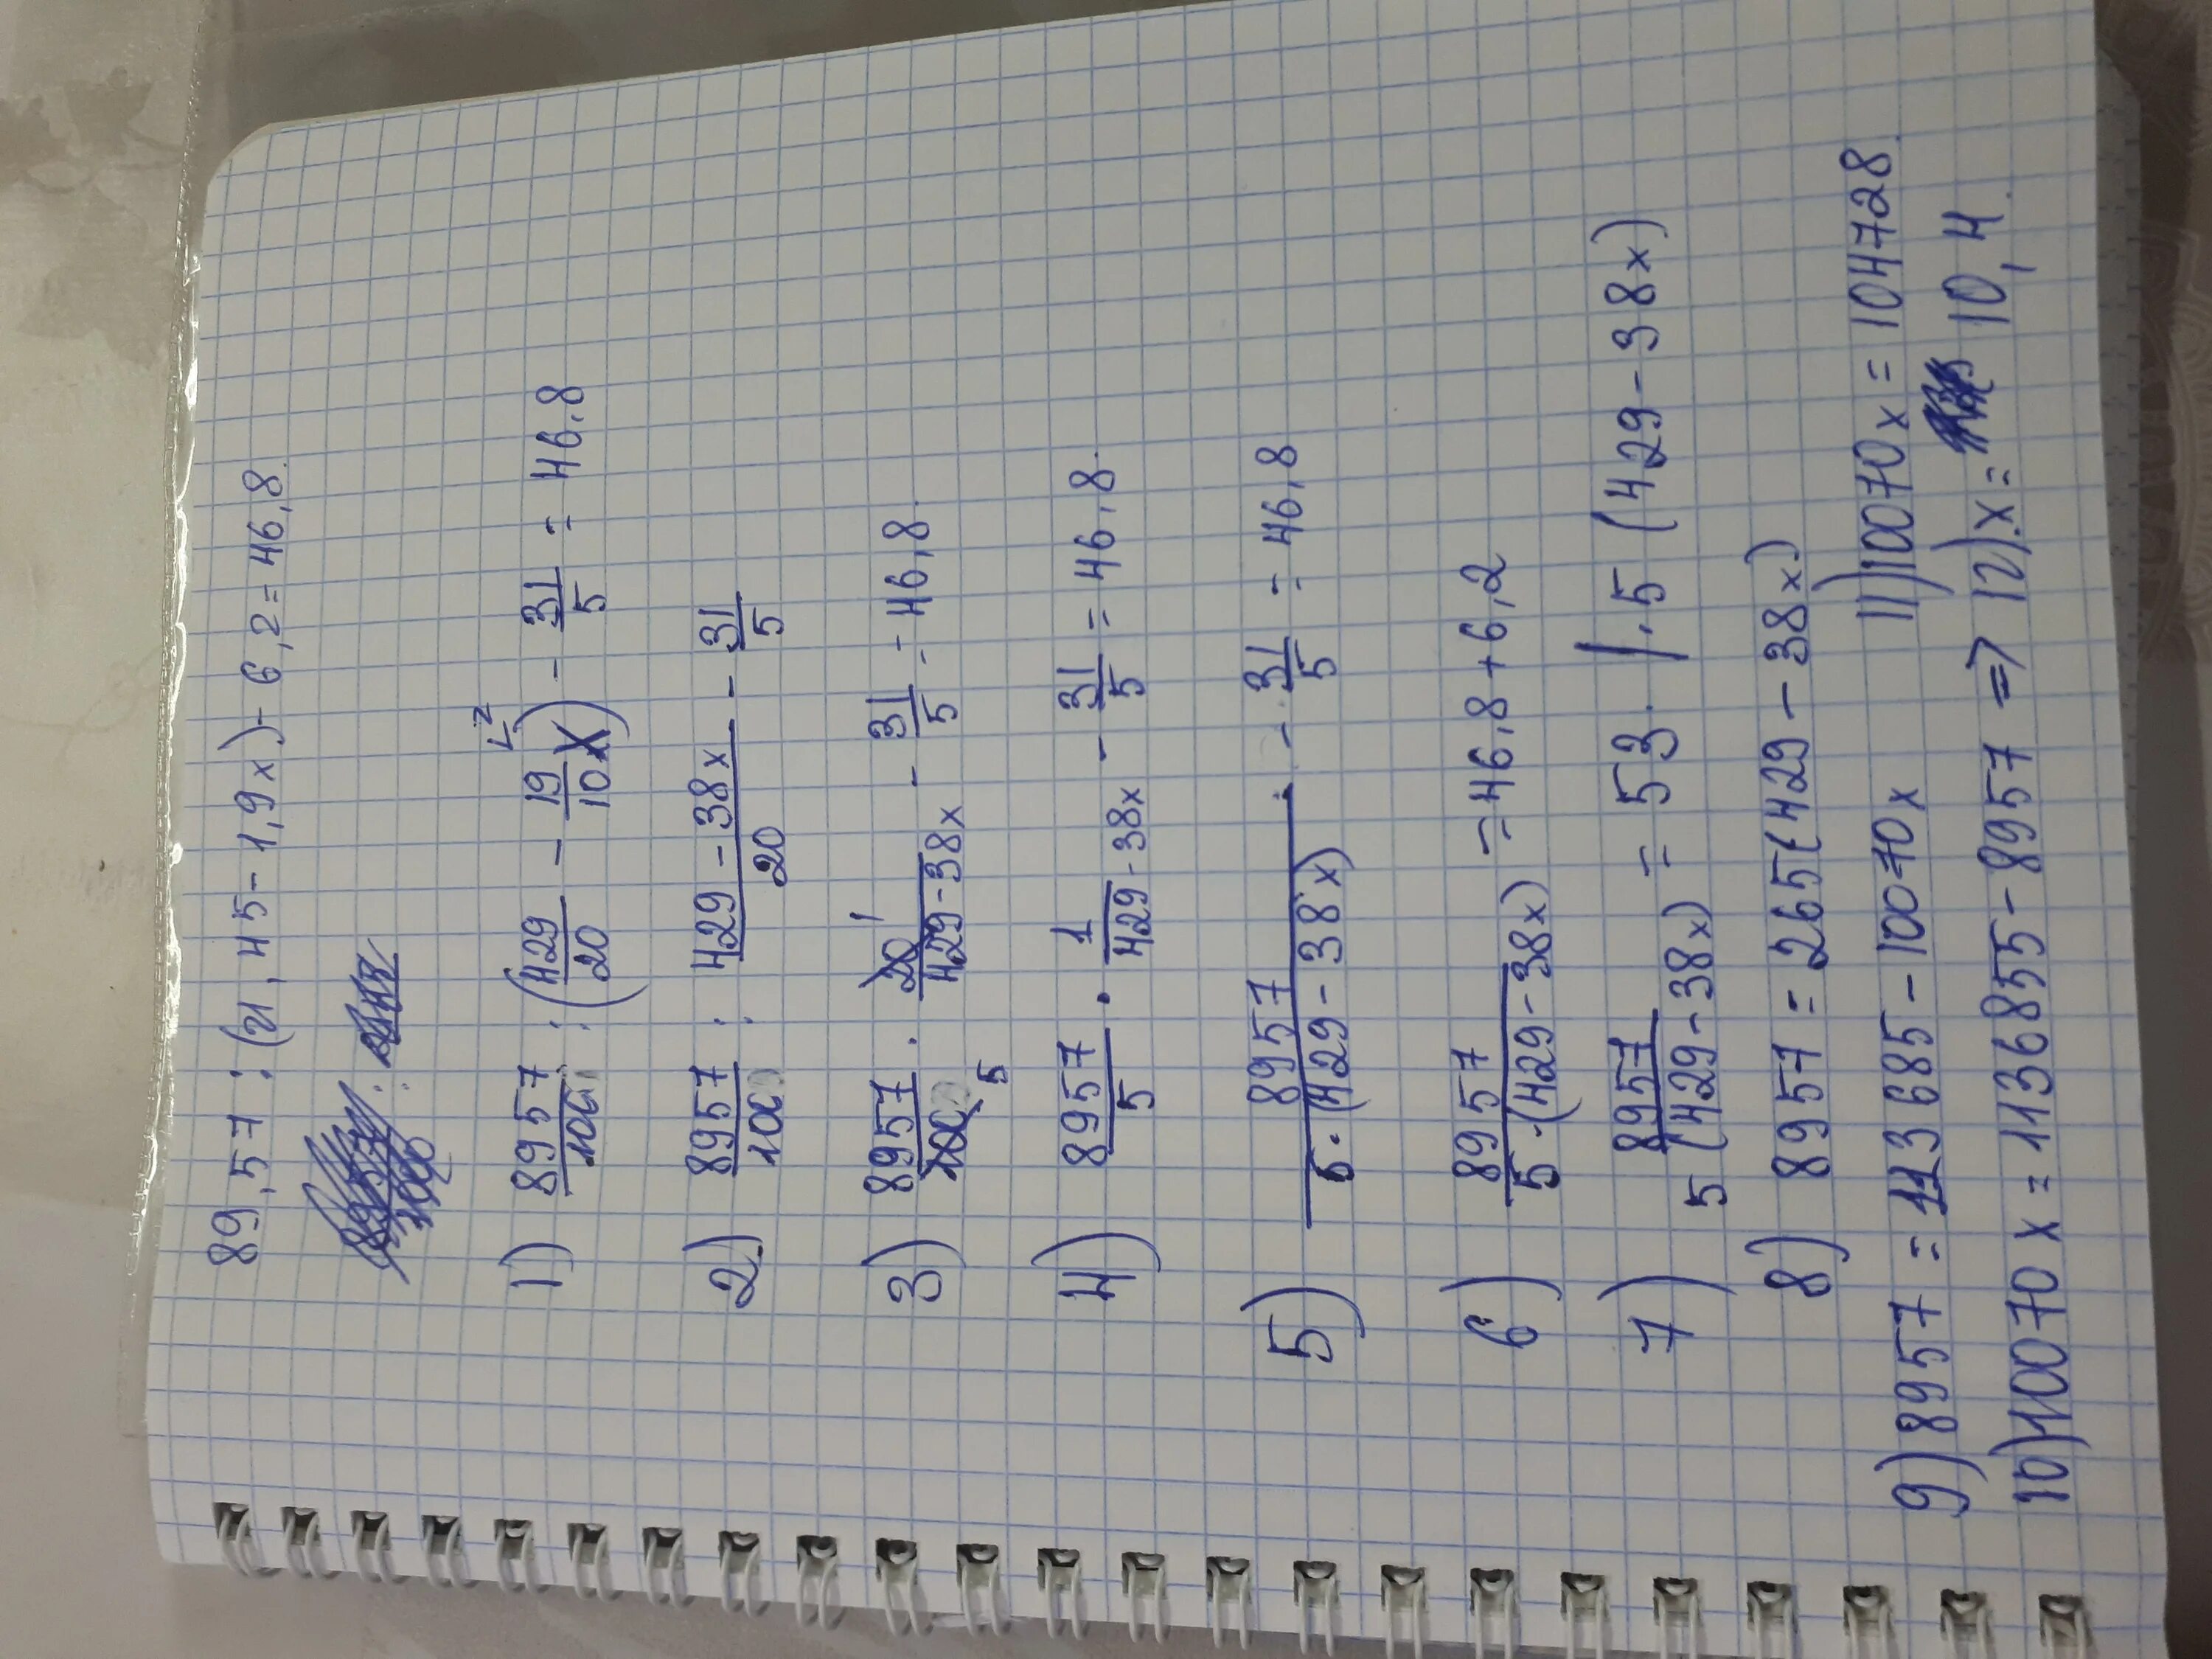 89,57 : (21,45-1,9x)-6,2=46,8.
1) 8957/100 : (429/20 - 19/10 x)^2 - 31/5 = 46,8
2) 8957/100 : 429-38x/20 - 31/5
3) 8957/100 5 · 20 1/429-38x - 31/5 = 46,8.
4) 8957/5 · 1/429-38x - 31/5 = 46,8.
5) 8957/5·(429-38x) - 31/5 = 46,8
6) 8957/5·(429-38x) = 46,8+6,2
7) 8957/5(429-38x) = 53. |·5(429-38x)
8) 8957=265(429-38x)
9) 8957=113685-10070x 11) 10070x=104728.
10) 10070x=1136855-8957 => 12).x= 10,4.